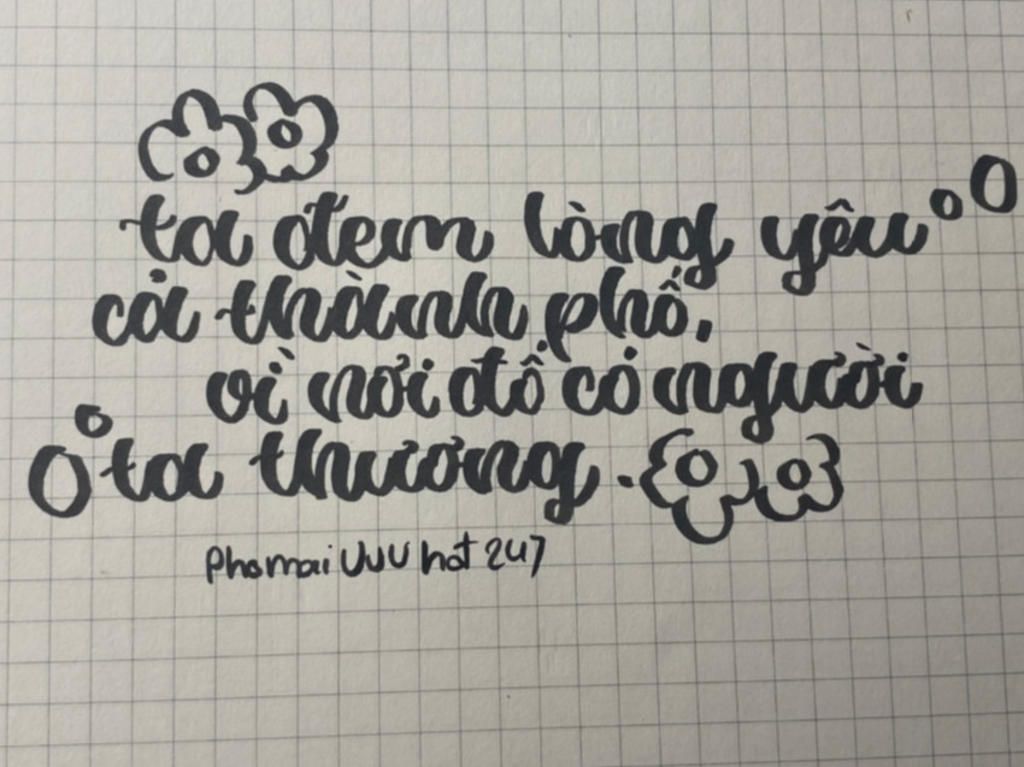 ta đem lòng yêu
cả thành phố,
vì nơi đó có người
ta thương.
Phomai UUU hat 247